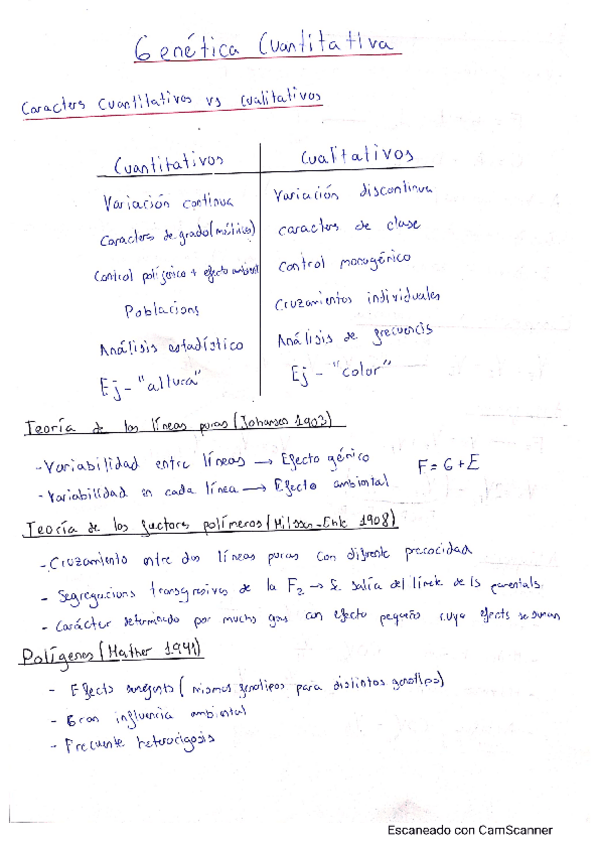 Genética Cuantitativa
Caracters Cuantitativos vs Cualitativos
Cuantitativos
Cualitativos
Variación continua
Variación discontinua
Caracters de grado (métrico)
caracters de clase
Control poligénico + efecto ambient
Control monogénico
Poblacions
Cruzamientos individuales
Análisis estadístico
Análisis de frecuencis
Ej - "altura"
Ej - "color"
Teoría de las líneas puras (Johansen 1903)
- Variabilidad entre líneas → Efecto génico
F = G + E
- Variabilidad en cada línea → Efecto ambiental
Teoría de los factors polímeros (Nilsson-Ehle 1908)
- Cruzamiento entre dos líneas puras con difrente precocidad
- Segregacions transgresivas de la F2 → Se salía del límite de ls parentals
- Carácter determinado por muchs gns con efecto pequeño cuyo efects se suman
Polígenes (Mather 1941)
- Effects ( mismos fenotipos para distintos genotipos)
- Gran influencia ambiental
- Frecuente heterocigosis
Escaneado con CamScanner